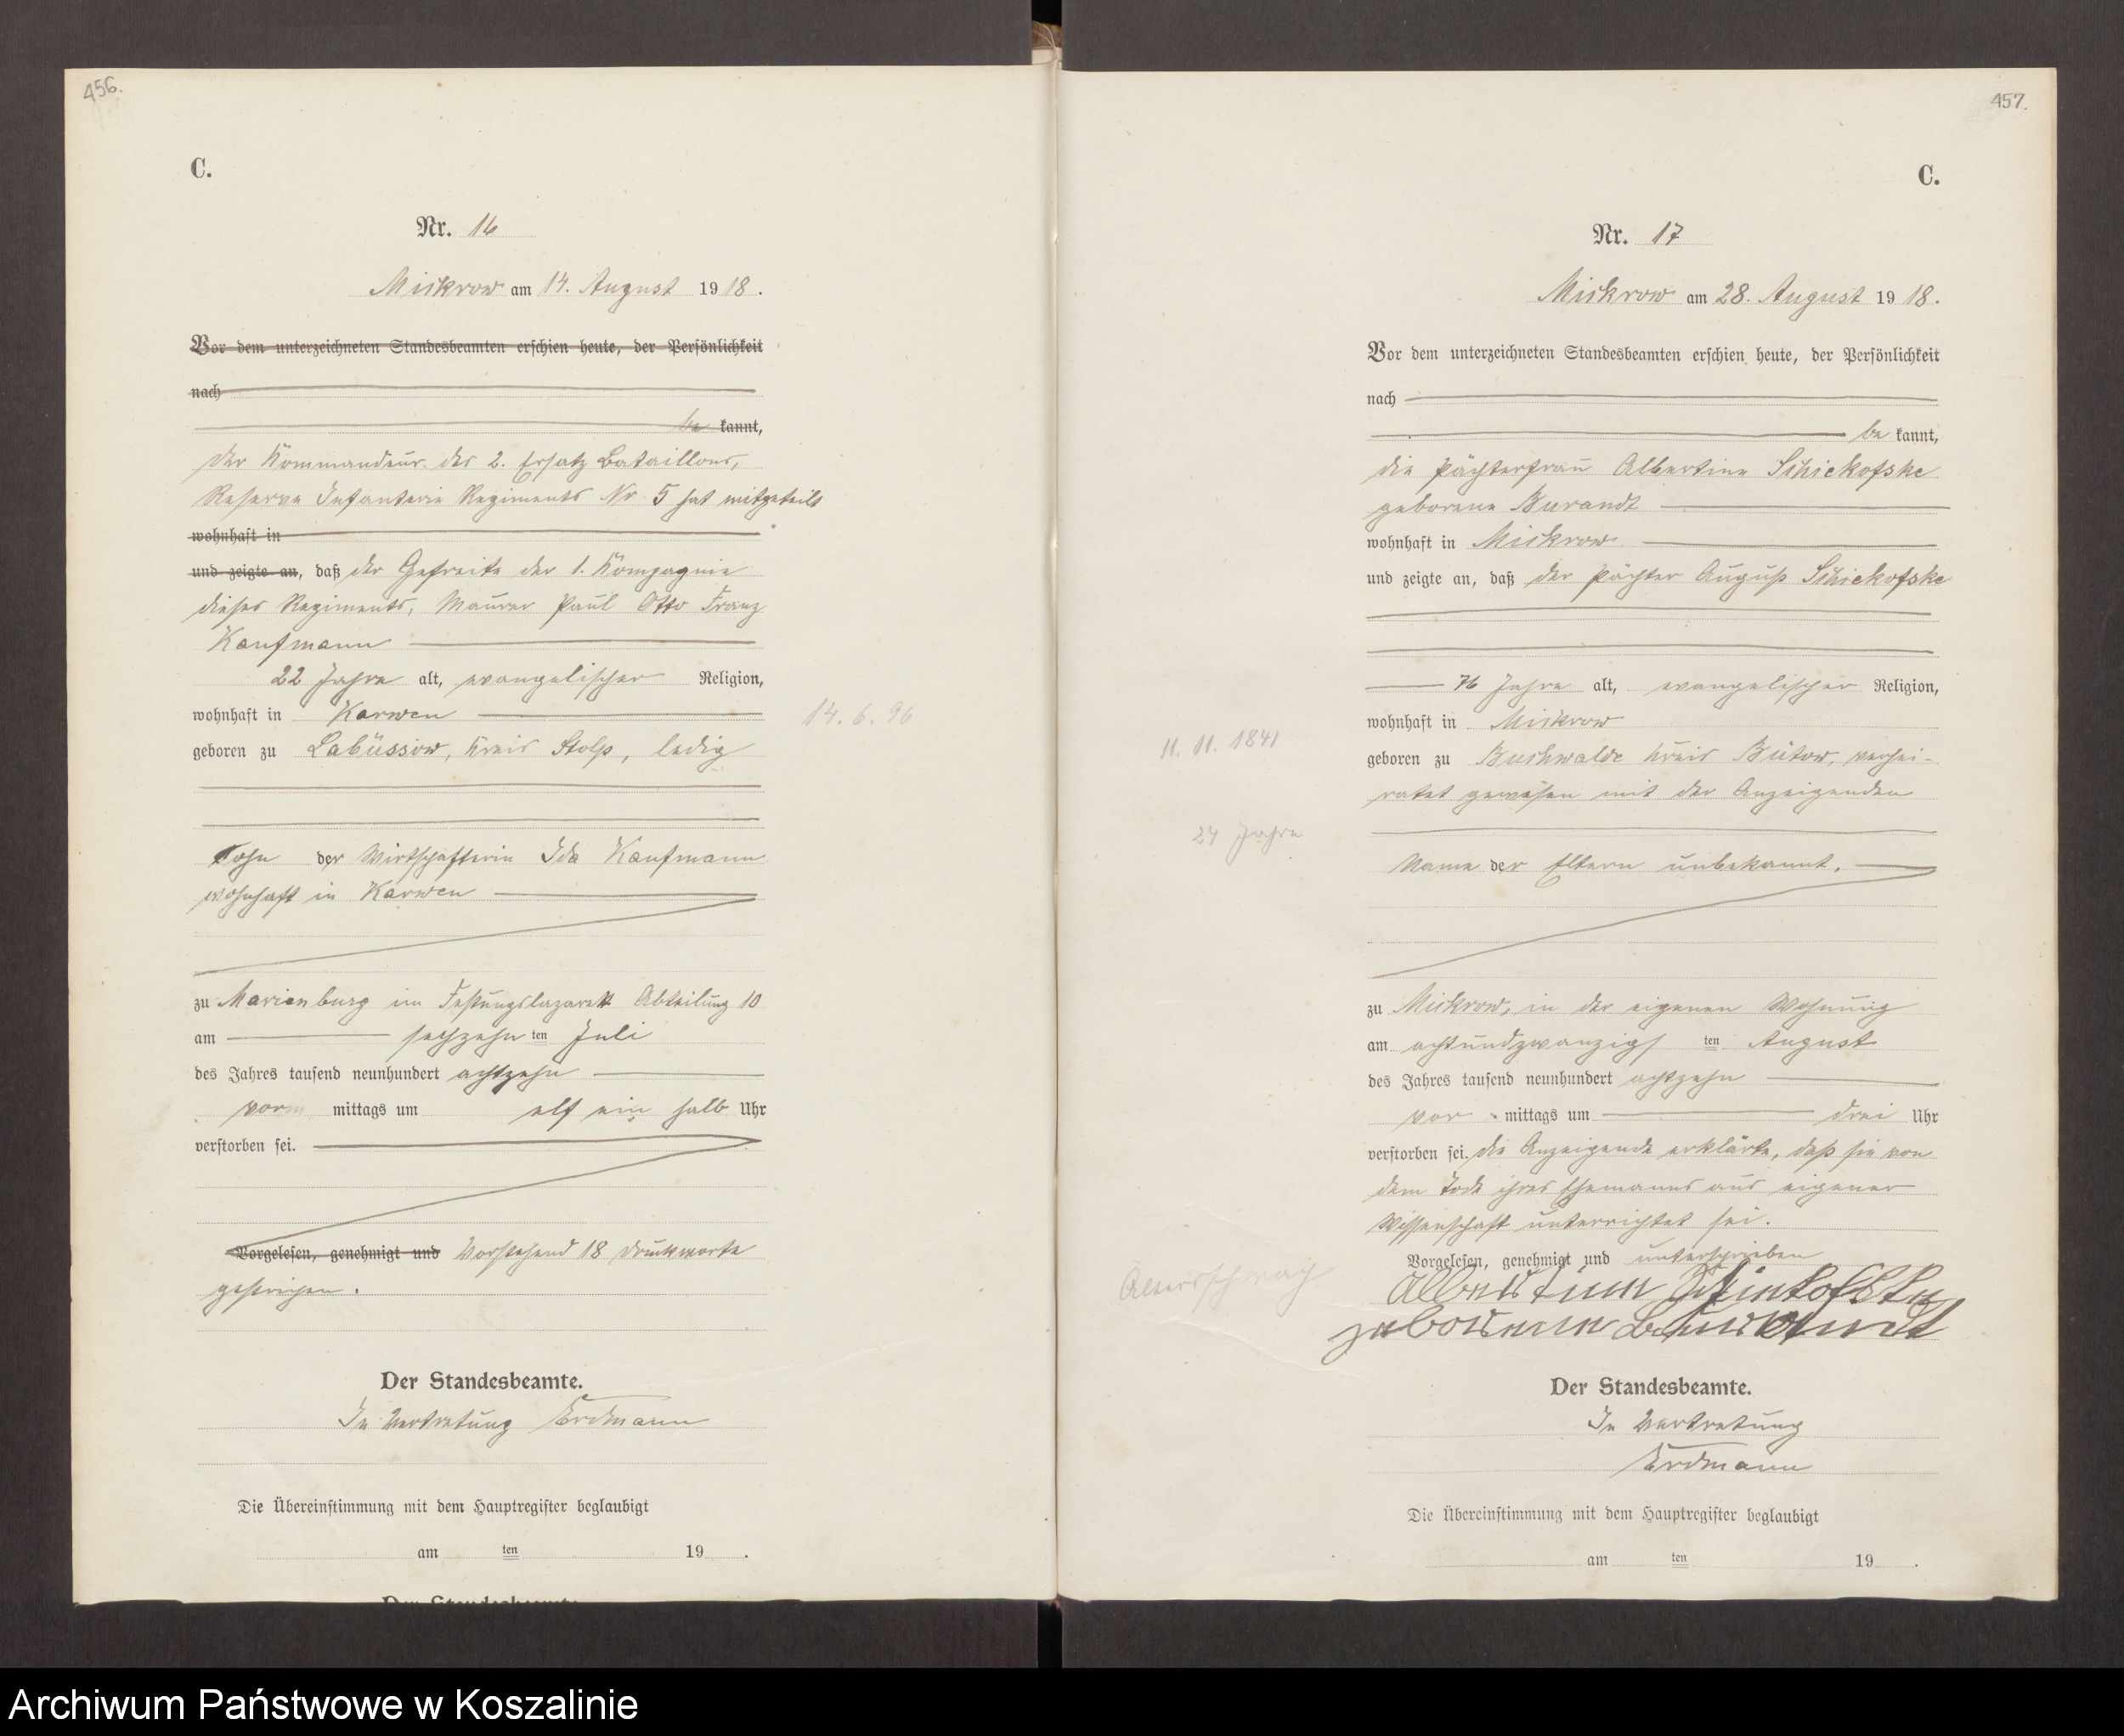 456.
C.
Nr. 16
Mickrow am 14. August 1918.
Vor dem unterzeichneten Standesbeamten erschien heute, der Persönlichkeit
nach
be kannt,
Der Kommandeur des 2. Ersatz Bataillons,
Reserve Infanterie Regiments Nr 5 hat mitgeteilt
wohnhaft in
und zeigte an, daß der Gefreite der 1. Kompagnie
dieses Regiments, Maurer Paul Otto Franz
Kaufmann
22 Jahre alt, evangelischer Religion,
wohnhaft in Karwen
14. 6. 96
geboren zu Labüssow, Kreis Stolp, ledig
Sohn der Wirtschafterin Ida Kaufmann
wohnhaft in Karwen
zu Marienburg im Festungslazarett Abteilung 10
am sechzehn ten Juli
des Jahres tausend neunhundert achtzehn
vor mittags um elf ein halb Uhr
verstorben sei.
Vorgelesen, genehmigt und Vorstehend 18 Druckworte
gestrichen.
Der Standesbeamte.
In Vertretung Erdmann
Die Übereinstimmung mit dem Hauptregister beglaubigt
am ten 19 .
Der Standesbeamte
457.
C.
Nr. 17
Mickrow am 28. August 1918.
Vor dem unterzeichneten Standesbeamten erschien heute, der Persönlichkeit
nach
be kannt,
die Pächterfrau Albertine Schickofske
geborene Burandt
wohnhaft in Mickrow
und zeigte an, daß der Pächter August Schickofske
76 Jahre alt, evangelischer Religion,
wohnhaft in Mickrow
11. 11. 1841
geboren zu Buchwalde Kreis Bütow, verhei-
ratet gewesen mit der Anzeigenden
24 Jahre
Name der Eltern unbekannt.
zu Mickrow, in der eigenen Wohnung
am achtundzwanzigs ten August
des Jahres tausend neunhundert achtzehn
vor mittags um drei Uhr
verstorben sei. Die Anzeigende erklärte, daß sie von
dem Tode ihres Ehemanns aus eigener
Wissenschaft unterrichtet sei.
Vorgelesen, genehmigt und unterschrieben
Altersschwach
Albertine Schickofske
geborene Burandt
Der Standesbeamte.
In Vertretung
Erdmann
Die Übereinstimmung mit dem Hauptregister beglaubigt
am ten 19 .
Archiwum Państwowe w Koszalinie